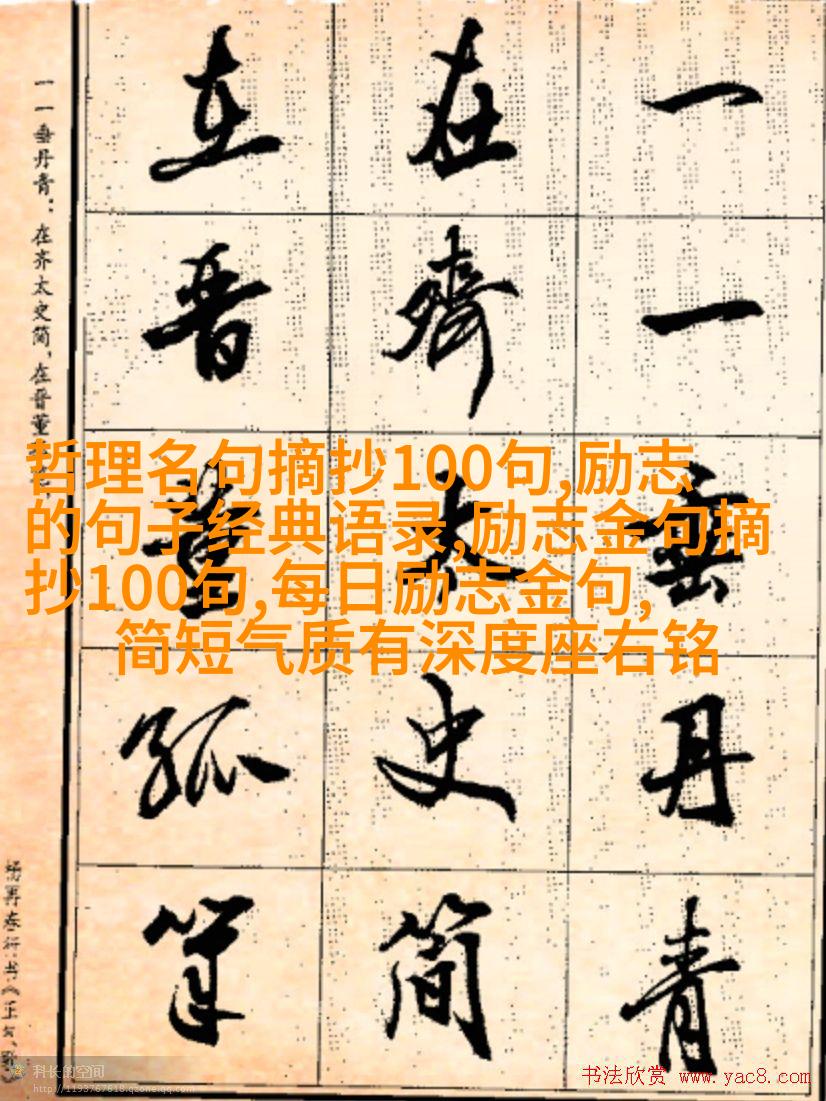 一一垂丹青
在齊太史简
在晋董狐筆
一一垂丹青：在齐太史简，在晋董
杨再春行书《正气歌
哲理名句摘抄100句,励志
的句子经典语录,励志金句摘
抄100句,每日励志金句,
简短气质有深度座右铭
科长的空间
http://1193767618.qzone.qq.com
书法欣赏 www.yac8.com